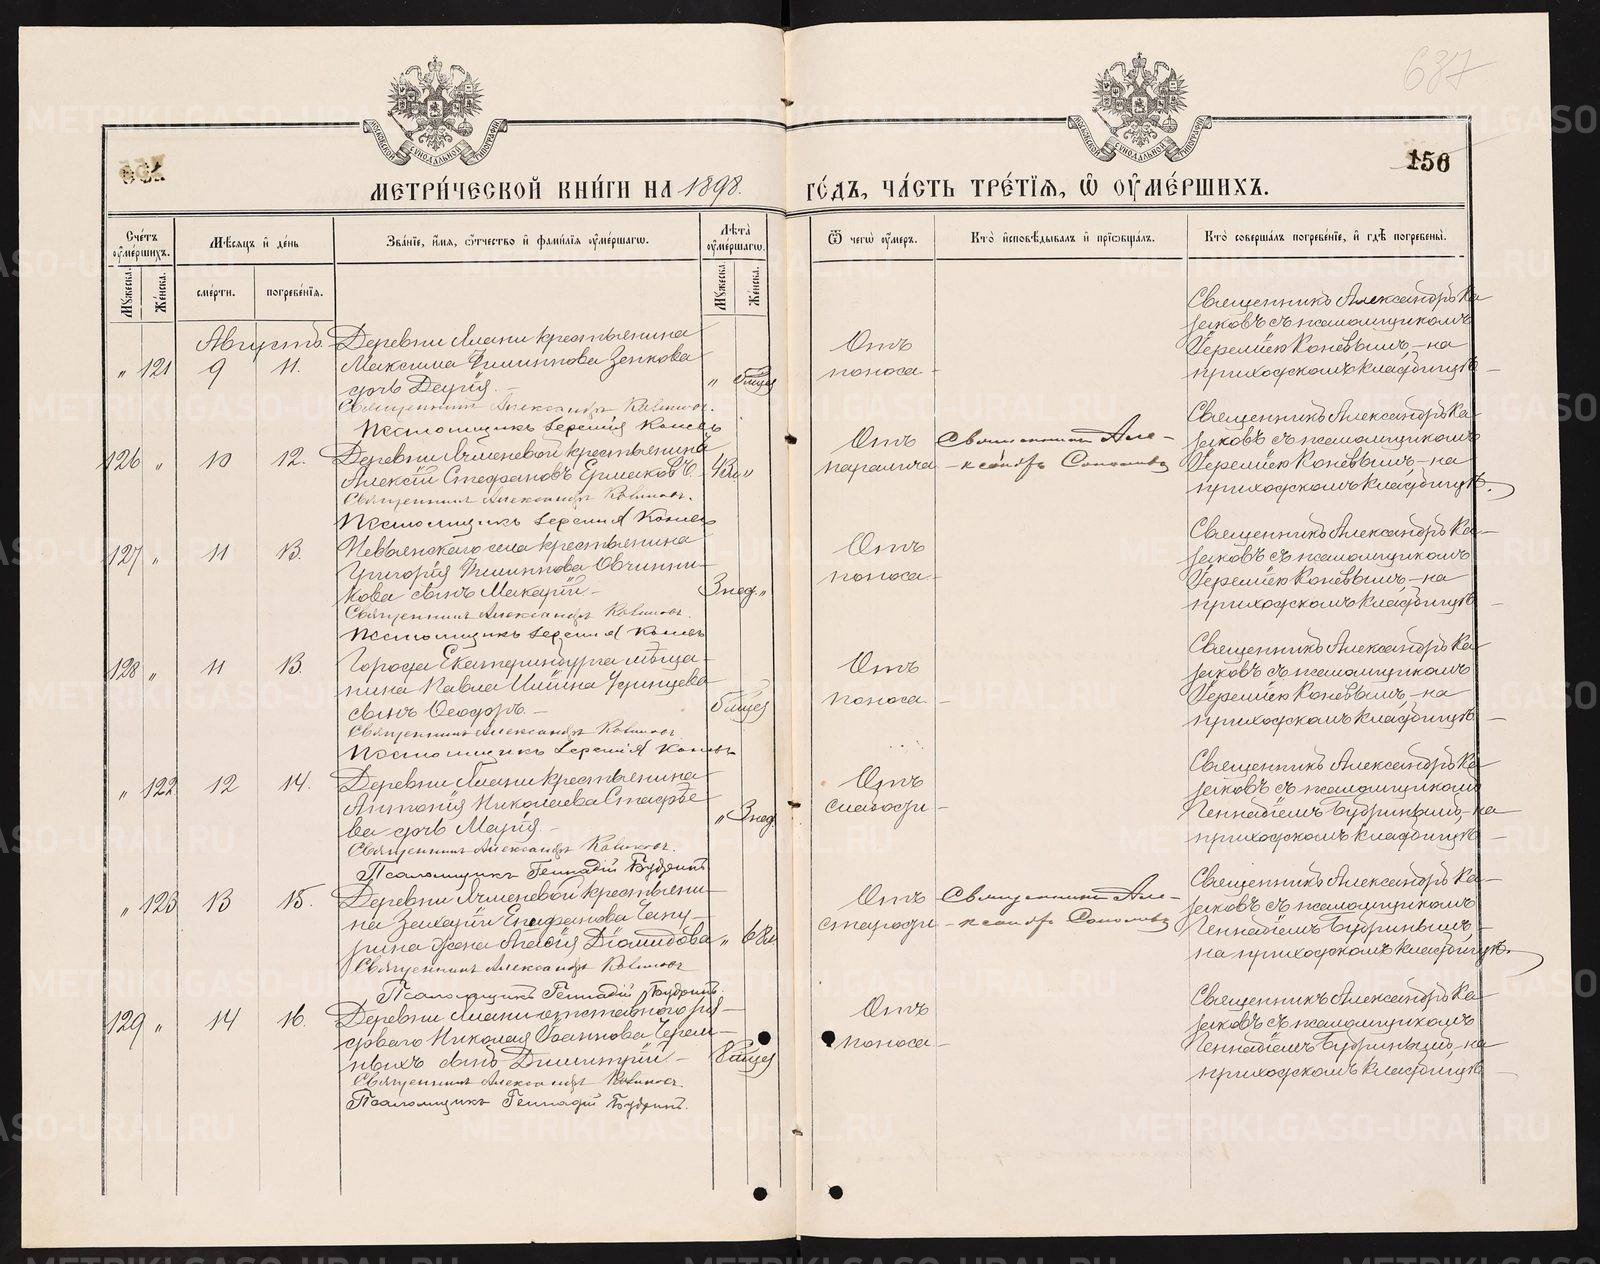 637
156
МОСКОВСКОЙ СѴНОДАЛЬНОЙ ТИПОГРАФІИ
МОСКОВСКОЙ СѴНОДАЛЬНОЙ ТИПОГРАФІИ
МЕТРИ́ЧЕСКОЙ КНИ́ГИ НА 1898. ГО́ДЪ, ЧА́СТЬ ТРЕ́ТЇѦ, Ѽ ОУМЕ́РШИХЪ.
Сче́тъ оуме́ршихъ.
Мꙋжеска.
Же́нска.
Мѣ́сѧцъ и де́нь
сме́рти.
погребе́нїѧ.
Зва́нїе, и́мѧ, о́тчество и фами́лїѧ оуме́ршагѡ.
Лѣ́та оуме́ршагѡ.
Мꙋжеска.
Же́нска.
Ѿ чегѡ̀ оу́меръ.
Кто̀ исповѣ́дывалъ и прїѡбща́лъ.
Кто̀ соверша́лъ погребе́нїе, и гдѣ̀ погребены̀.
Августъ.
" 121 9 11.
Деревни Ялани крестьянина
Максима Филиппова Зенкова
дочь Дарія. —
Священникъ Александръ
Псаломщикъ Іеремія Коневъ
" 6 мцев
Отъ
поноса —
Священникъ Александръ Ка-
заковъ съ псаломщикомъ
Іереміею Коневымъ, — на
приходскомъ кладбищѣ —
126 " 10 12.
Деревни Ячменевой крестьянинъ
Алексій Стефановъ Ермаковъ.
Священникъ Александръ
Псаломщикъ Іеремія Коневъ
43 "
Отъ
паралича
Священникъ Але-
— ксандръ
Священникъ Александръ Ка-
заковъ съ псаломщикомъ
Іереміею Коневымъ, — на
приходскомъ кладбищѣ.
127 " 11 13.
Невьянскаго села крестьянина
Григорія Филиппова Овчинни-
кова сынъ Макарій —
Священникъ Александръ
Псаломщикъ Іеремія Коневъ
3 нед. "
Отъ
поноса —
Священникъ Александръ Ка-
заковъ съ псаломщикомъ
Іереміею Коневымъ, — на
приходскомъ кладбищѣ —
128 " 11 13.
Города Екатеринбурга мѣща-
нина Павла Ильина
сынъ Ѳеодоръ. —
Священникъ Александръ
Псаломщикъ Іеремія Коневъ
6 мцев
Отъ
поноса —
Священникъ Александръ Ка-
заковъ съ псаломщикомъ
Іереміею Коневымъ, — на
приходскомъ кладбищѣ —
" 122 12 14.
Деревни Ялани крестьянина
Антонія Николаева
дочь Марія. —
Священникъ Александръ
Псаломщикъ Геннадій Будринъ
" 3 нед.
Отъ
слабости —
Священникъ Александръ Ка-
заковъ съ псаломщикомъ
Геннадіемъ Будринымъ, — на
приходскомъ кладбищѣ —
" 123 13 15.
Деревни Ячменевой крестьяни-
на Захарія Епифанова Чепу-
рина жена Агафія Діомидова
Священникъ Александръ
Псаломщикъ Геннадій Будринъ.
" 68
Отъ
старости
Священникъ Але-
— ксандръ
Священникъ Александръ Ка-
заковъ съ псаломщикомъ
Геннадіемъ Будринымъ —
на приходскомъ кладбищѣ.
129 " 14 16.
Деревни Ялани отставного ря-
дового Николая Іоаннова Черем-
ныхъ сынъ Димитрій —
Священникъ Александръ
Псаломщикъ Геннадій Будринъ.
8 мцев
Отъ
поноса —
Священникъ Александръ Ка-
заковъ съ псаломщикомъ
Геннадіемъ Будринымъ, — на
приходскомъ кладбищѣ —
METRIKI.GASO-URAL.RU